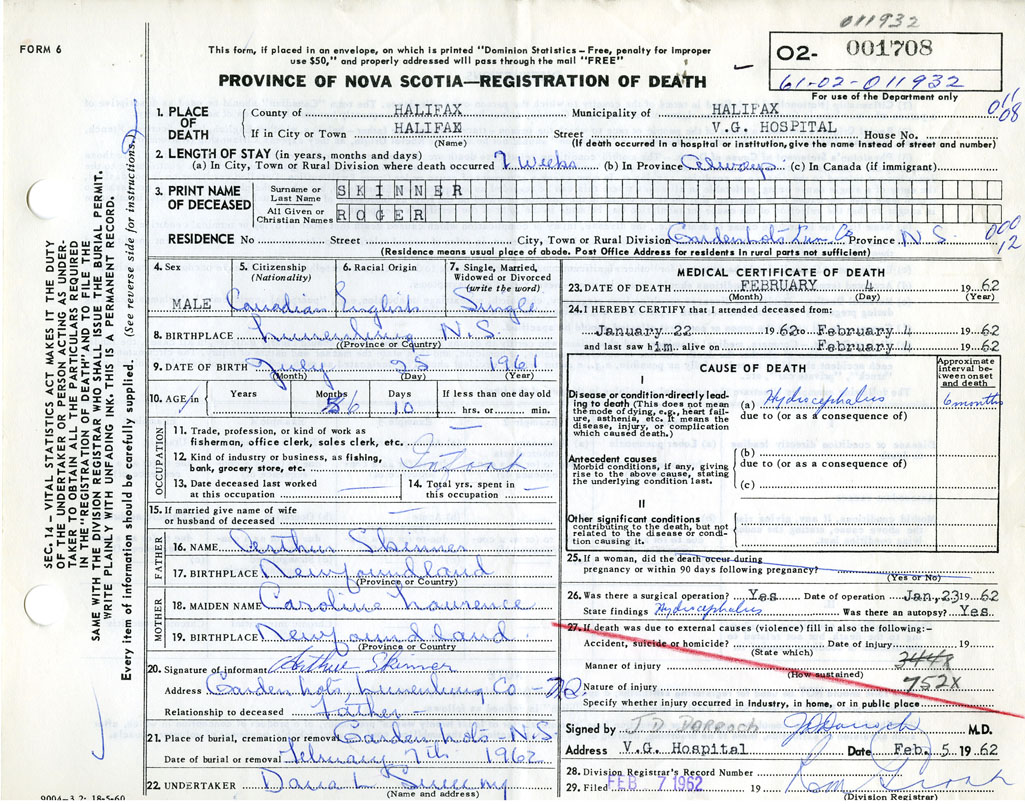 011932
FORM 6
This form, if placed in an envelope, on which is printed "Dominion Statistics – Free, penalty for improper
use $50," and properly addressed will pass through the mail "FREE"
PROVINCE OF NOVA SCOTIA—REGISTRATION OF DEATH
02- 001708
61-02-011932
For use of the Department only
011
08
1. PLACE OF DEATH
County of HALIFAX Municipality of HALIFAX
If in City or Town HALIFAX Street V.G. HOSPITAL House No.
(Name) (If death occurred in a hospital or institution, give the name Instead of street and number)
2. LENGTH OF STAY (in years, months and days)
(a) In City, Town or Rural Division where death occurred 2 weeks (b) In Province Always (c) In Canada (if immigrant)
3. PRINT NAME OF DECEASED
Surname or Last Name SKINNER
All Given or Christian Names ROGER
RESIDENCE No Street City, Town or Rural Division Garden Lots Lun. Co Province N.S.
(Residence means usual place of abode. Post Office Address for residents in rural parts not sufficient)
000
12
SEC. 14 – VITAL STATISTICS ACT MAKES IT THE DUTY
OF THE UNDERTAKER OR PERSON ACTING AS UNDER-
TAKER TO OBTAIN ALL THE PARTICULARS REQUIRED
IN THE "REGISTRATION OF DEATH" AND TO FILE THE
SAME WITH THE DIVISION REGISTRAR WHO SHALL ISSUE THE BURIAL PERMIT.
WRITE PLAINLY WITH UNFADING INK. THIS IS A PERMANENT RECORD.
Every item of information should be carefully supplied. (See reverse side for instructions.)
4. Sex MALE
5. Citizenship (Nationality) Canadian
6. Racial Origin English
7. Single, Married, Widowed or Divorced (write the word) Single
8. BIRTHPLACE Lunenburg N.S.
(Province or Country)
9. DATE OF BIRTH July 25 1961
(Month) (Day) (Year)
10. AGE Years Months 6 Days 10 If less than one day old hrs. or min.
OCCUPATION
11. Trade, profession, or kind of work as
fisherman, office clerk, sales clerk, etc.
12. Kind of industry or business, as fishing,
bank, grocery store, etc. Infant
13. Date deceased last worked
at this occupation
14. Total yrs. spent in
this occupation
15. If married give name of wife
or husband of deceased
FATHER
16. NAME Arthur Skinner
17. BIRTHPLACE Newfoundland
(Province or Country)
MOTHER
18. MAIDEN NAME Caroline Laurence
19. BIRTHPLACE Newfoundland
(Province or Country)
20. Signature of informant Arthur Skinner
Address Garden Lots, Lunenburg Co - N.S.
Relationship to deceased Father
21. Place of burial, cremation or removal Garden Lots - N.S
Date of burial or removal February 7th 1962
22. UNDERTAKER Dana L Sweeny
(Name and address)
9004-3.2: 18-5-60
MEDICAL CERTIFICATE OF DEATH
23. DATE OF DEATH FEBRUARY 4 19 62
(Month) (Day) (Year)
24. I HEREBY CERTIFY that I attended deceased from:
January 22 1962 to February 4 19 62
and last saw him alive on February 4 19 62
CAUSE OF DEATH
Approximate interval between onset and death
I
Disease or condition directly lead-
ing to death (This does not mean
the mode of dying, e.g., heart fail-
ure, asthenia, etc. It means the
disease, injury, or complication
which caused death.)
(a) Hydrocephalus 6 months
due to (or as a consequence of)
Antecedent causes
Morbid conditions, if any, giving
rise to the above cause, stating the
underlying condition last.
(b)
due to (or as a consequence of)
(c)
II
Other significant conditions
contributing to the death, but not
related to the disease or condi-
tion causing it.
25. If a woman, did the death occur during
pregnancy or within 90 days following pregnancy?
(Yes or No)
26. Was there a surgical operation? Yes Date of operation Jan. 23 19 62
State findings Hydrocephalus Was there an autopsy? Yes
27. If death was due to external causes (violence) fill in also the following:–
Accident, suicide or homicide? Date of injury 19
(State which)
Manner of injury 344X
(How sustained)
Nature of injury 752X
Specify whether injury occurred in Industry, in home, or in public place
Signed by J D DARRACH M.D.
Address V.G. Hospital Date Feb. 5 19 62
28. Division Registrar's Record Number
29. Filed FEB 7 1962 19
(Division Registrar)